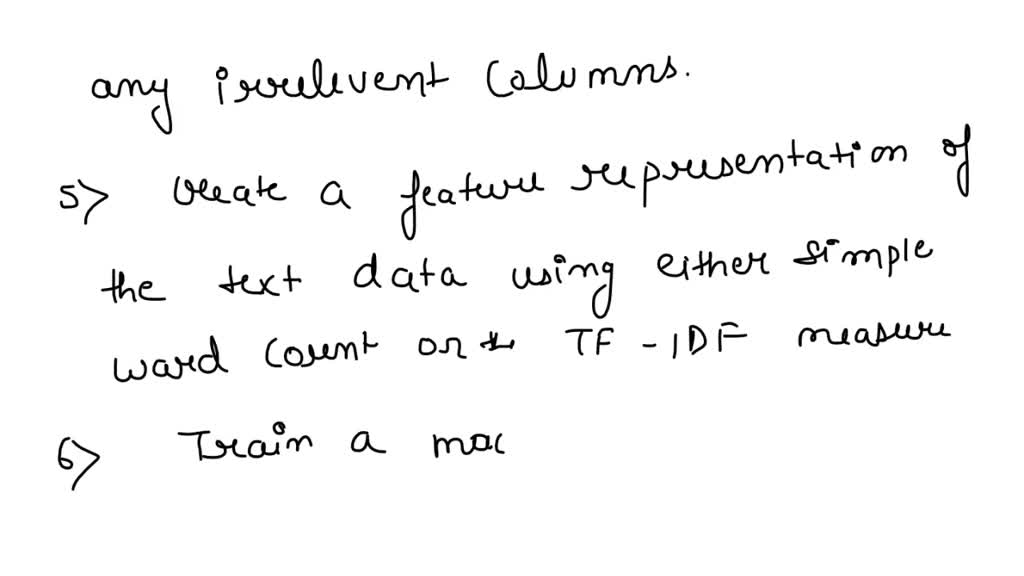 any irrelevent columns.
5> create a feature representation of
the text data using either simple
word count or the TF-IDF measure
6> Train a mac